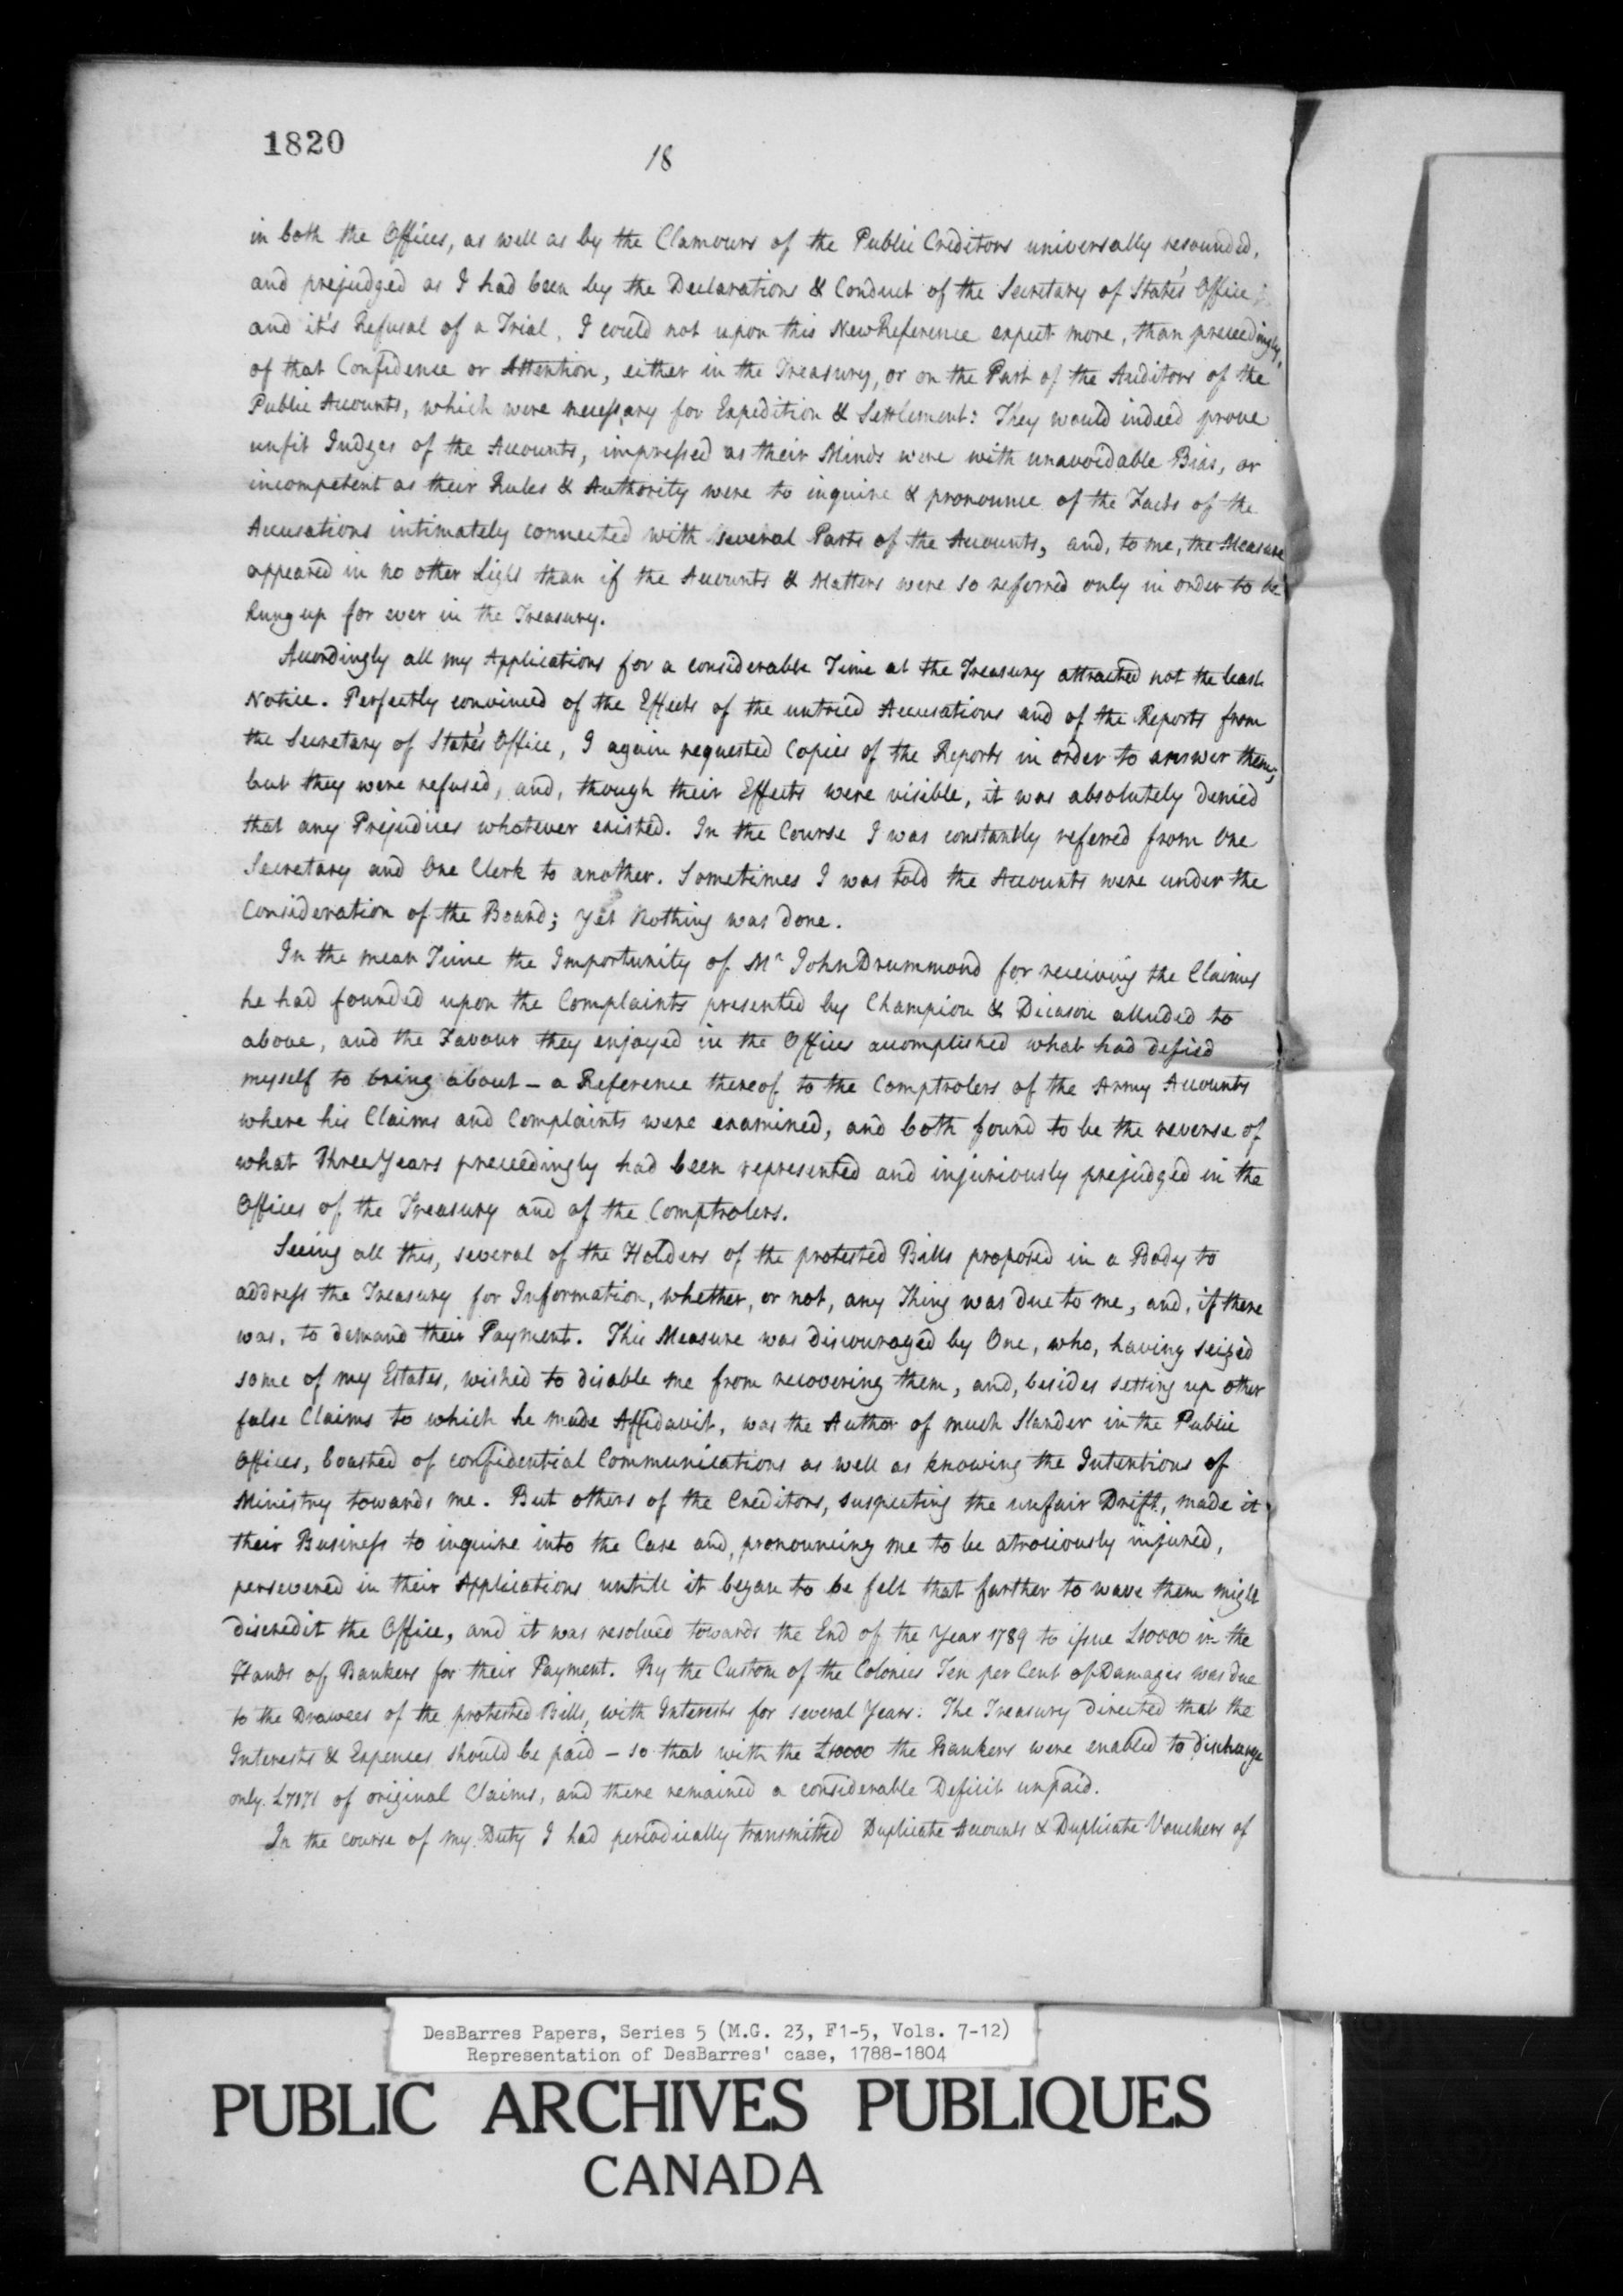 1820
18
in both the Offices, as well as by the Clamours of the Public Creditors universally resounded,
and prejudged as I had been by the Declarations & Conduct of the Secretary of State's Office;
and it's Refusal of a Trial, I could not upon this New Reference expect more, than preceedingly,
of that Confidence or Attention, either in the Treasury, or on the Part of the Auditors of the
Public Accounts, which were necessary for Expedition & Settlement: They would indeed prove
unfit Judges of the Accounts, impressed as their Minds were with unavoidable Bias, or
incompetent as their Rules & Authority were to inquire & pronounce of the Facts of the
Accusations intimately connected with several Parts of the Accounts, and, to me, the Measure
appeared in no other Light than if the Accounts & Matters were so referred only in order to be
hung up for ever in the Treasury.
Accordingly all my Applications for a considerable Time at the Treasury attracted not the least
Notice. Perfectly convinced of the Effects of the untried Accusations and of the Reports from
the Secretary of State's Office, I again requested Copies of the Reports in order to answer them,
but they were refused, and, though their Effects were visible, it was absolutely denied
that any Prejudices whatever existed. In the Course I was constantly referred from One
Secretary and One Clerk to another. Sometimes I was told the Accounts were under the
Consideration of the Board; yet Nothing was done.
In the mean Time the Importunity of Mr John Drummond for receiving the Claims
he had founded upon the Complaints presented by Champion & Dicason alluded to
above, and the Favour they enjoyed in the Offices accomplished what had defied
myself to bring about - a Reference thereof to the Comptrolers of the Army Accounts
where his Claims and Complaints were examined, and both found to be the reverse of
what Three Years preceedingly had been represented and injuriously prejudged in the
Offices of the Treasury and of the Comptrolers.
Seeing all this, several of the Holders of the protested Bills proposed in a Body to
address the Treasury for Information, whether, or not, any Thing was due to me, and, if there
was, to demand their Payment. This Measure was discouraged by One, who, having seized
some of my Estates, wished to disable me from recovering them, and, besides setting up other
false Claims to which he made Affidavit, was the Author of much Slander in the Public
Offices, boasted of confidential Communications as well as knowing the Intentions of
Ministry towards me. But others of the Creditors, suspecting the unfair Drift, made it
their Business to inquire into the Case and, pronouncing me to be atrociously injured,
persevered in their Applications untill it began to be felt that further to wave them might
discredit the Office, and it was resolved towards the End of the Year 1789 to issue £10000 in the
Hands of Bankers for their Payment. By the Custom of the Colonies Ten per Cent of Damages was due
to the Drawees of the protested Bills, with Interests for several Years: The Treasury directed that the
Interests & Expences should be paid - so that with the £10000 the Bankers were enabled to discharge
only of original Claims, and there remained a considerable Deficit unpaid.
In the course of my Duty I had periodically transmitted Duplicate Accounts & Duplicate Vouchers of
DesBarres Papers, Series 5 (M.G. 23, F1-5, Vols. 7-12)
Representation of DesBarres' case, 1788-1804
PUBLIC ARCHIVES PUBLIQUES
CANADA